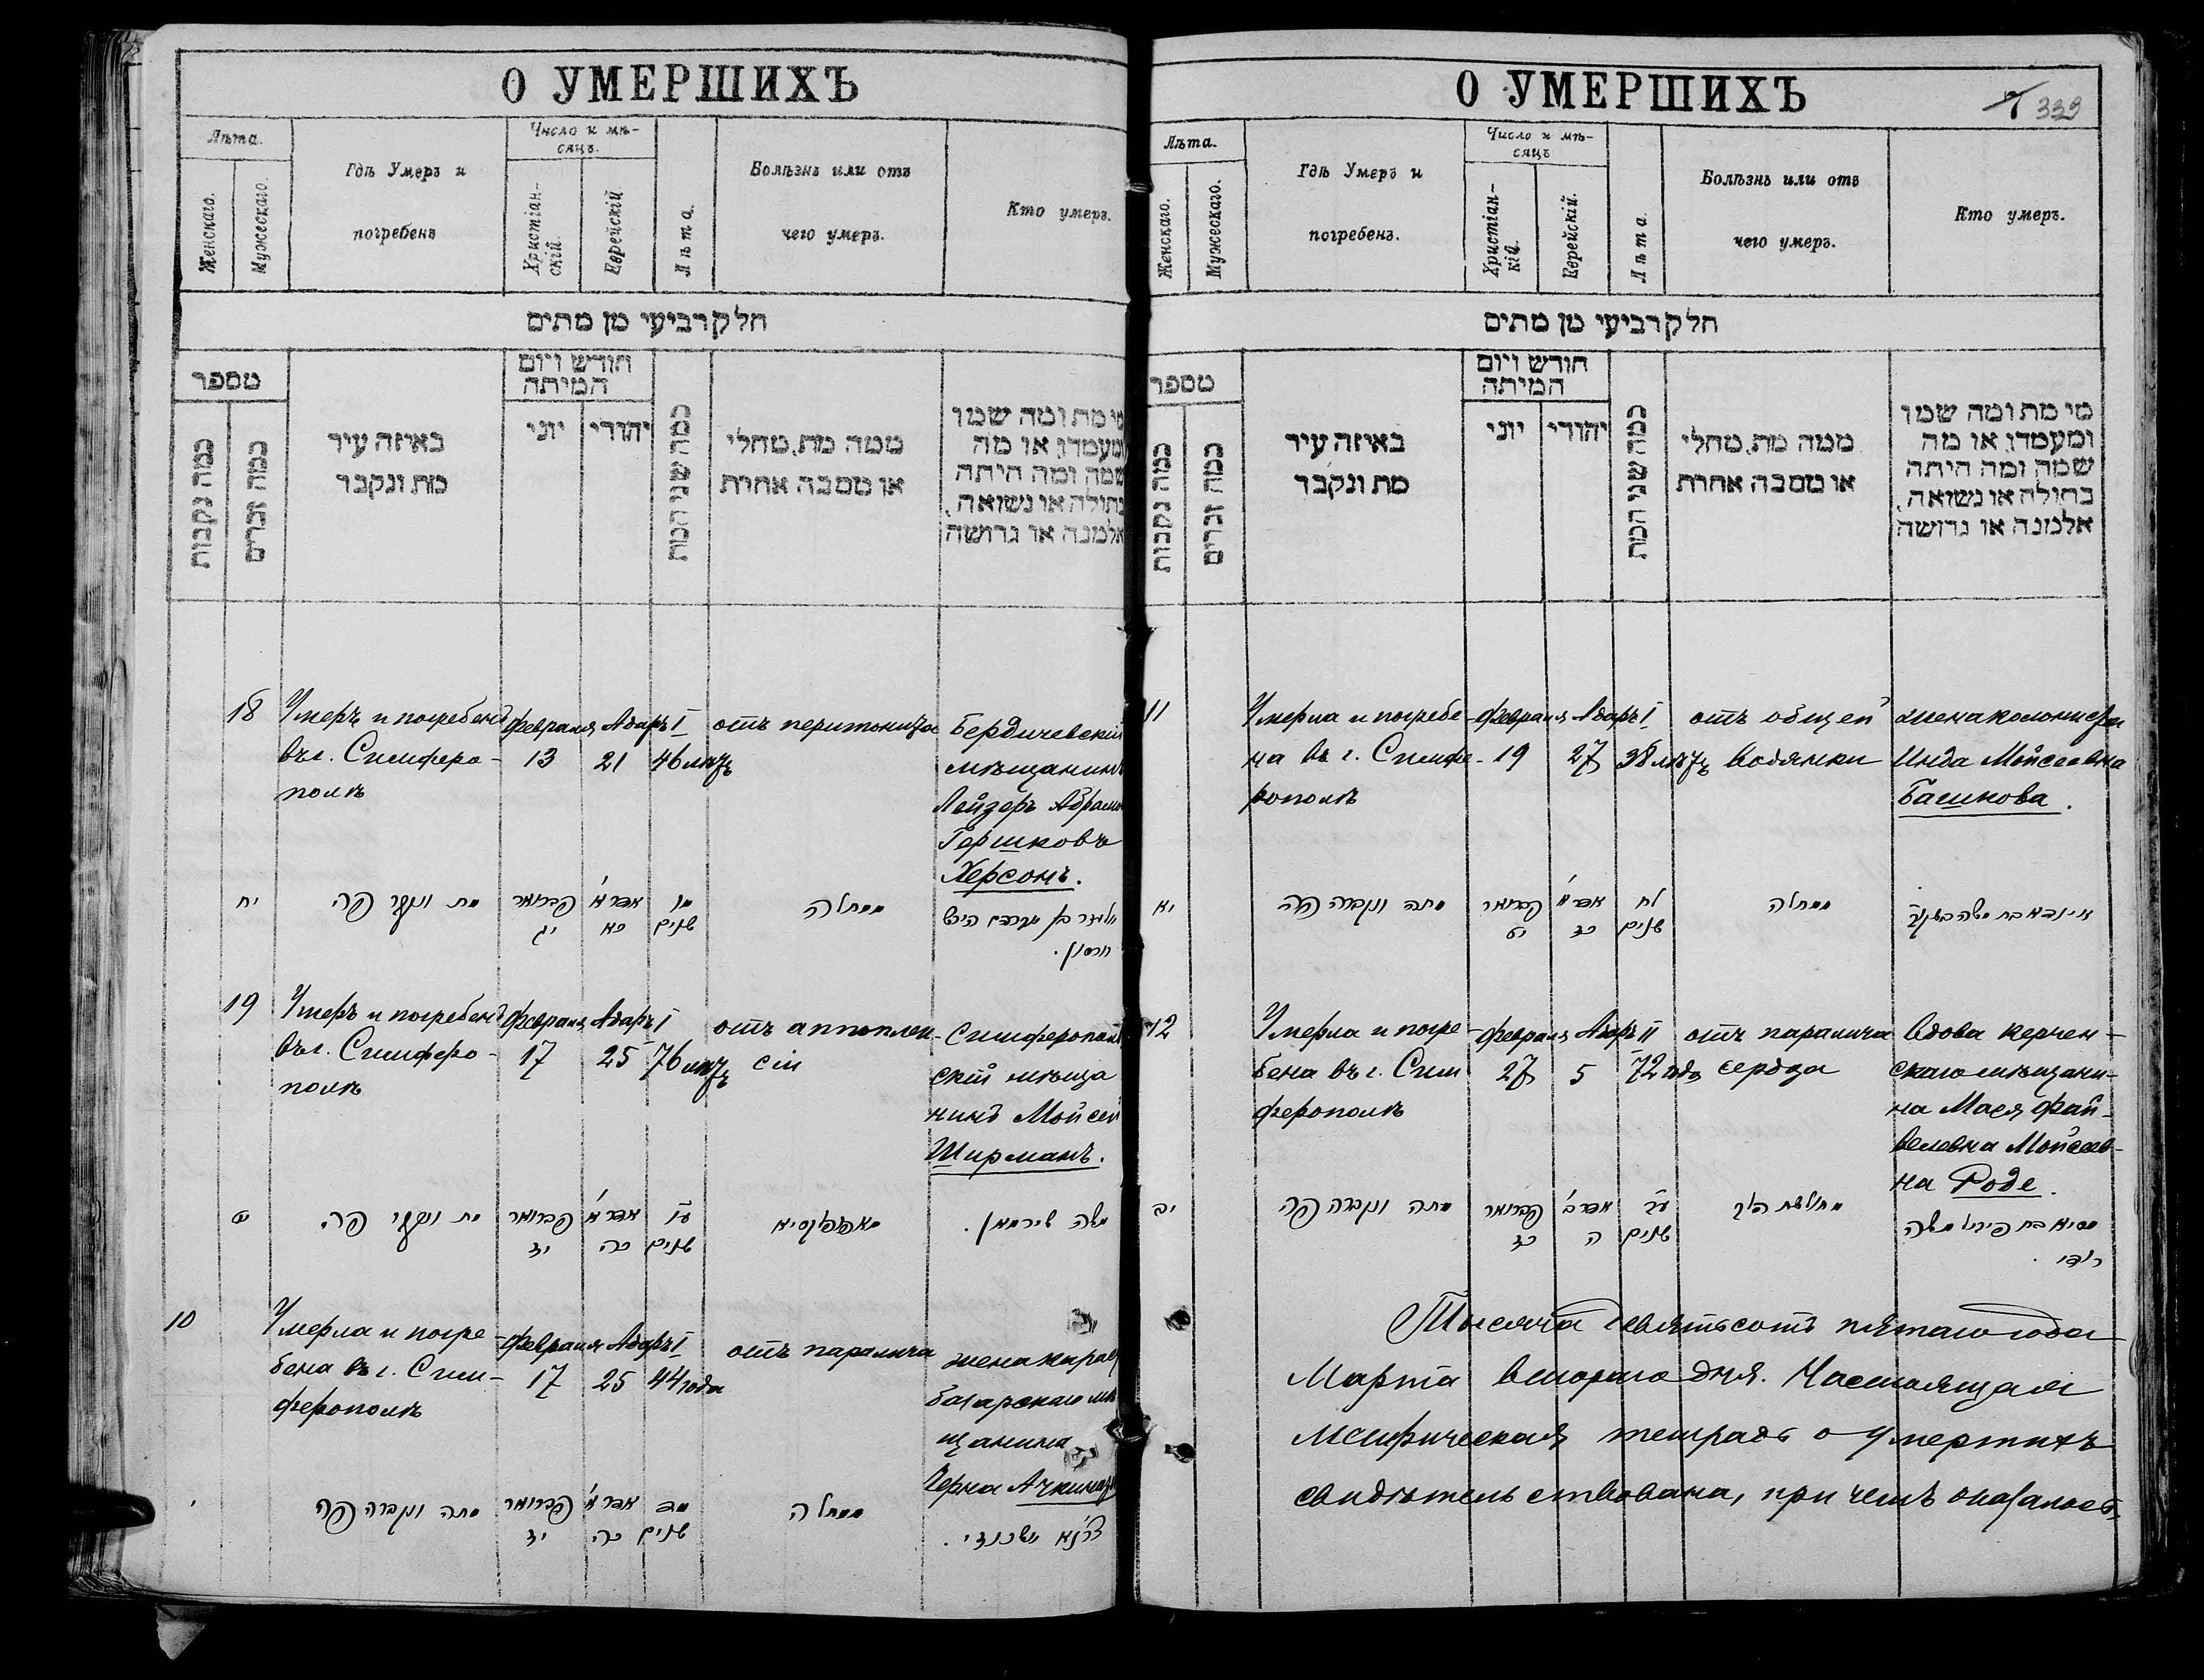 О УМЕРШИХЪ
Лѣта.
Женскаго.
Мужескаго.
Гдѣ Умеръ и
погребенъ
Число и мѣ-
сяцъ.
Христіан-
скій.
Еврейскій
Лѣта.
Болѣзнь или отъ
чего умеръ.
Кто умеръ.
חלק רביעי מן מתים
מספר
כמה נקבות
כמה זכרים
באיזה עיר
מת ונקבר
חודש ויום
המיתה
יוני
יהודי
כמה שני המת
ממה מת, מחלי
או מסבה אחרת
מי מת ומה שמו
ומעמדו, או מה
שמה ומה היתה
בתולה או נשואה,
אלמנה או גרושה
18
Умеръ и погребенъ
въ г. Симферо-
полѣ
Февраля
13
Адаръ I
21
46 лѣтъ
отъ перитонита
Бердичевскій
мѣщанинъ
Лейзеръ Абрамъ
Гершковъ
Херсонъ.
יח
מת ונקבר פה
פברואר
יג
אדר א'
כא
מו
שנים
ממחלה
חרסון.
19
Умеръ и погребенъ
въ г. Симферо-
полѣ
Февраля
17
Адаръ I
25
76 лѣтъ
отъ апоплек-
сіи
Симферополь
скій мѣща
нинъ Мойсей
Ширманъ.
יט
מת ונקבר פה
פברואר
יז
אדר א'
כה
עו
שנים
משה שירמאן.
10
Умерла и погре-
бена въ г. Сим-
ферополѣ
Февраля
17
Адаръ I
25
44 года
отъ паралича
жена карасу
базарскаго мѣ
щанина
Черна Ачкинази
י
מתה ונקברה פה
פברואר
יז
אדר א'
כה
שנים
ממחלה
אשכנזי.
О УМЕРШИХЪ
339
Лѣта.
Женскаго.
Мужескаго.
Гдѣ Умеръ и
погребенъ.
Число и мѣ-
сяцъ
Христіан-
кій.
Еврейскій.
Лѣта.
Болѣзнь или отъ
чего умеръ.
Кто умеръ.
חלק רביעי מן מתים
מספר
כמה נקבות
כמה זכרים
באיזה עיר
מת ונקבר
חודש ויום
המיתה
יוני
יהודי
כמה שני המת
ממה מת, מחלי
או מסבה אחרת
מי מת ומה שמו
ומעמדו, או מה
שמה ומה היתה
בתולה או נשואה,
אלמנה או גרושה
11
Умерла и погребе-
на въ г. Симфе-
рополѣ
Февраля
19
Адаръ I
27
38 лѣтъ
отъ общей
водянки
жена колониста
Инда Мойсеевна
Башкова.
יא
מתה ונקברה פה
פברואר
יט
אדר א'
כז
לח
שנים
ממחלה
12
Умерла и погре-
бена въ г. Сим
ферополѣ
Февраля
27
Адаръ II
5
72 года
отъ паралича
сердца
вдова керчен-
скаго мѣщани-
на Мася Фай-
велевна Мойсеев-
на Роде.
יב
מתה ונקברה פה
פברואר
כז
אדר ב'
ה
עב
שנים
מחולשת הלב
רודי.
Тысяча девятьсотъ пятаго года
Марта втораго дня. Настоящая
метрическая тетрадь о умершихъ
свидѣтельствована, при чемъ оказалось,